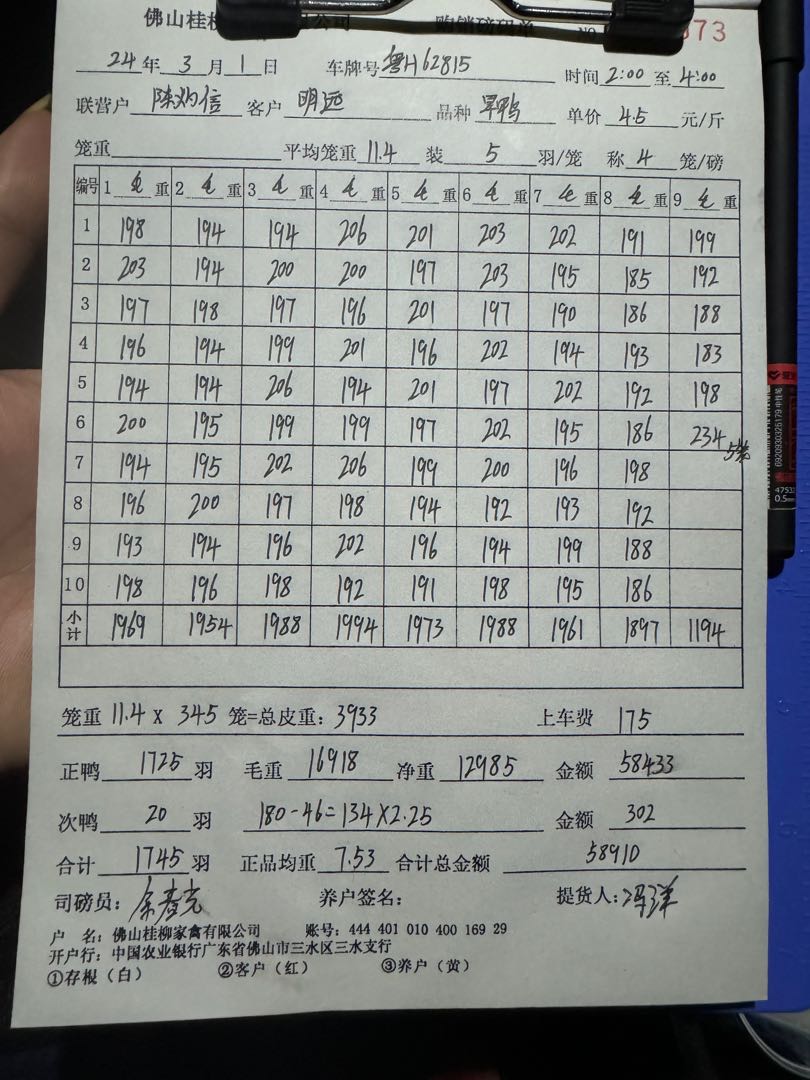 佛山桂柳 公司 购销磅码单 NO 373
24 年 3 月 1 日 车牌号 粤H62815 时间 2:00 至 4:00
联营户 陈灼信 客户 明远 品种 旱鸭 单价 4.5 元/斤
笼重 平均笼重 11.4 装 5 羽/笼 称 4 笼/磅
编号 1 毛 重 2 毛 重 3 毛 重 4 毛 重 5 毛 重 6 毛 重 7 毛 重 8 毛 重 9 毛 重
1 198 194 194 206 201 203 202 191 199
2 203 194 200 200 197 203 195 185 192
3 197 198 197 196 201 197 190 186 188
4 196 194 199 201 196 202 194 193 183
5 194 194 206 194 201 197 202 192 198
6 200 195 199 199 197 202 195 186 234 5笼
7 194 195 202 206 199 200 196 198
8 196 200 197 198 194 192 193 192
9 193 194 196 202 196 194 199 188
10 198 196 198 192 191 198 195 186
小计 1969 1954 1988 1994 1973 1988 1961 1897 1194
笼重 11.4 X 345 笼=总皮重: 3933 上车费 175
正鸭 1725 羽 毛重 16918 净重 12985 金额 58433
次鸭 20 羽 180-46=134X2.25 金额 302
合计 1745 羽 正品均重 7.53 合计总金额 58910
司磅员: 养户签名: 提货人: 冯洋
户 名: 佛山桂柳家禽有限公司 账号: 444 401 010 400 169 29
开户行: 中国农业银行广东省佛山市三水区三水支行
①存根(白) ②客户(红) ③养户(黄)
6920930325179 中性笔
4753
0.5mm